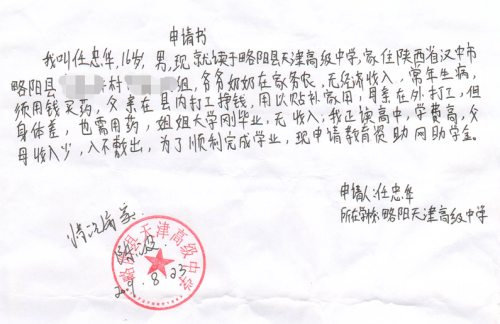 申请书
我叫任忠华,16岁,男,现就读于略阳县天津高级中学,家住陕西省汉中市
略阳县 村 组,爷爷奶奶在家务农,无经济收入,常年生病,
须用钱买药,父亲在县内打工挣钱,用以贴补家用,母亲在外打工,但
身体差,也需用药,姐姐大学刚毕业,无收入,我正读高中,学费高,父
母收入少,入不敷出,为了顺利完成学业,现申请教育资助网助学金。
申请人:任忠华
所在学校:略阳天津高级中学
情况属实
略阳县天津高级中学
8.23